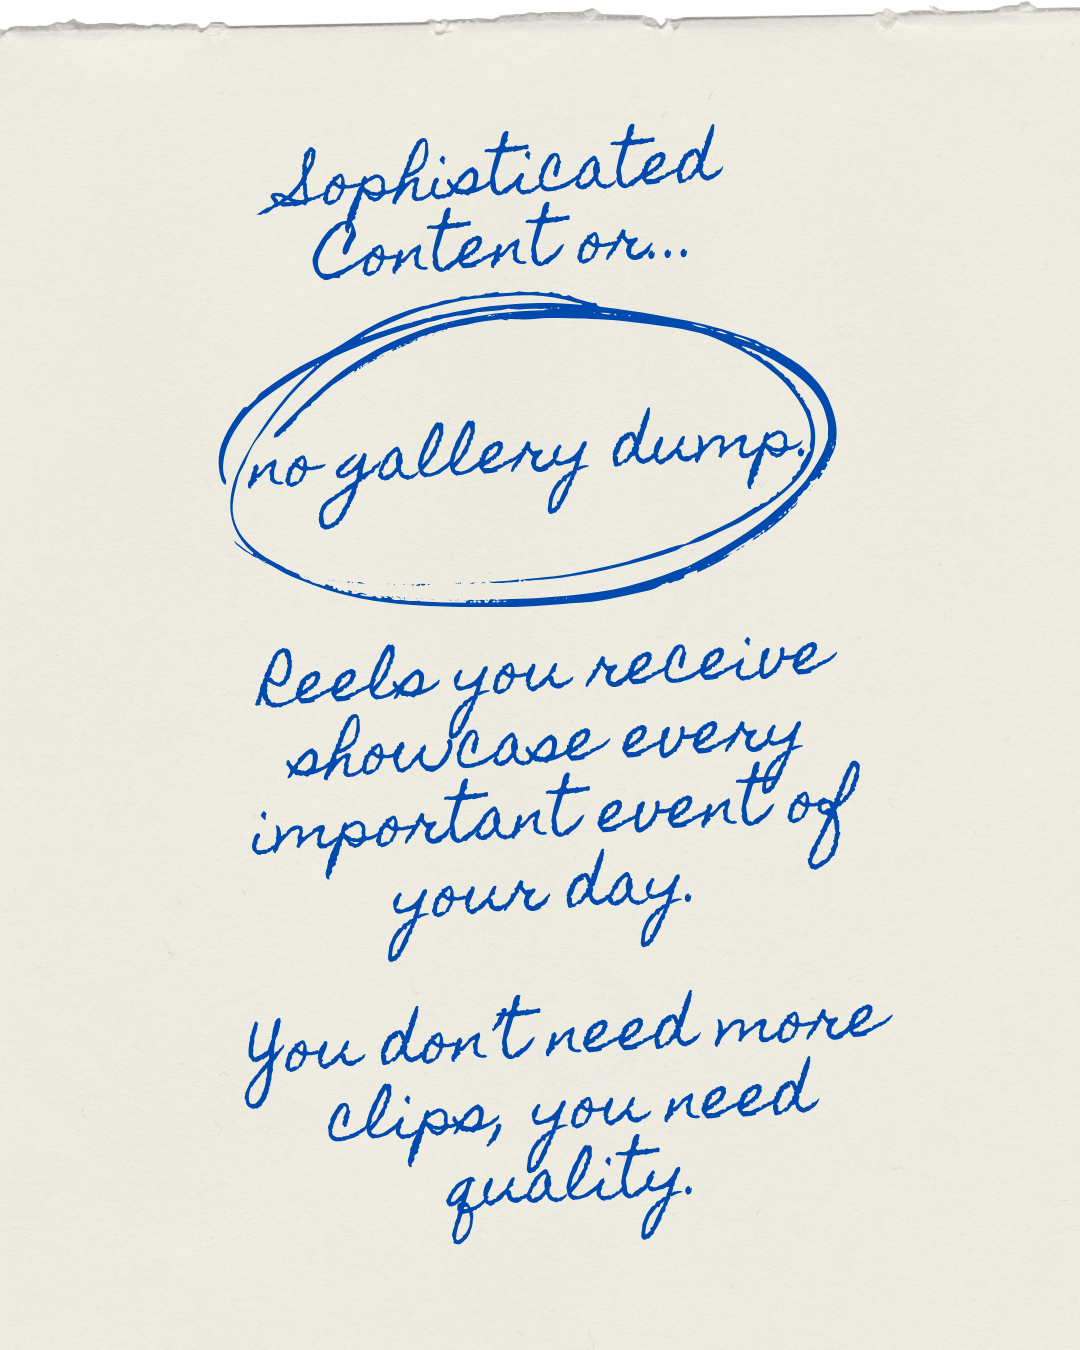 Sophisticated
Content or...
no gallery dump.
Reels you receive
showcase every
important event of
your day.
You don't need more
clips, you need
quality.